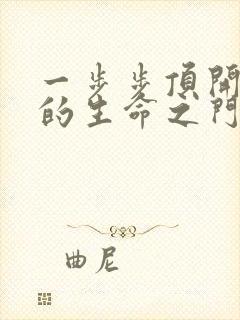 一步步頂開
的生命之門
曲尼